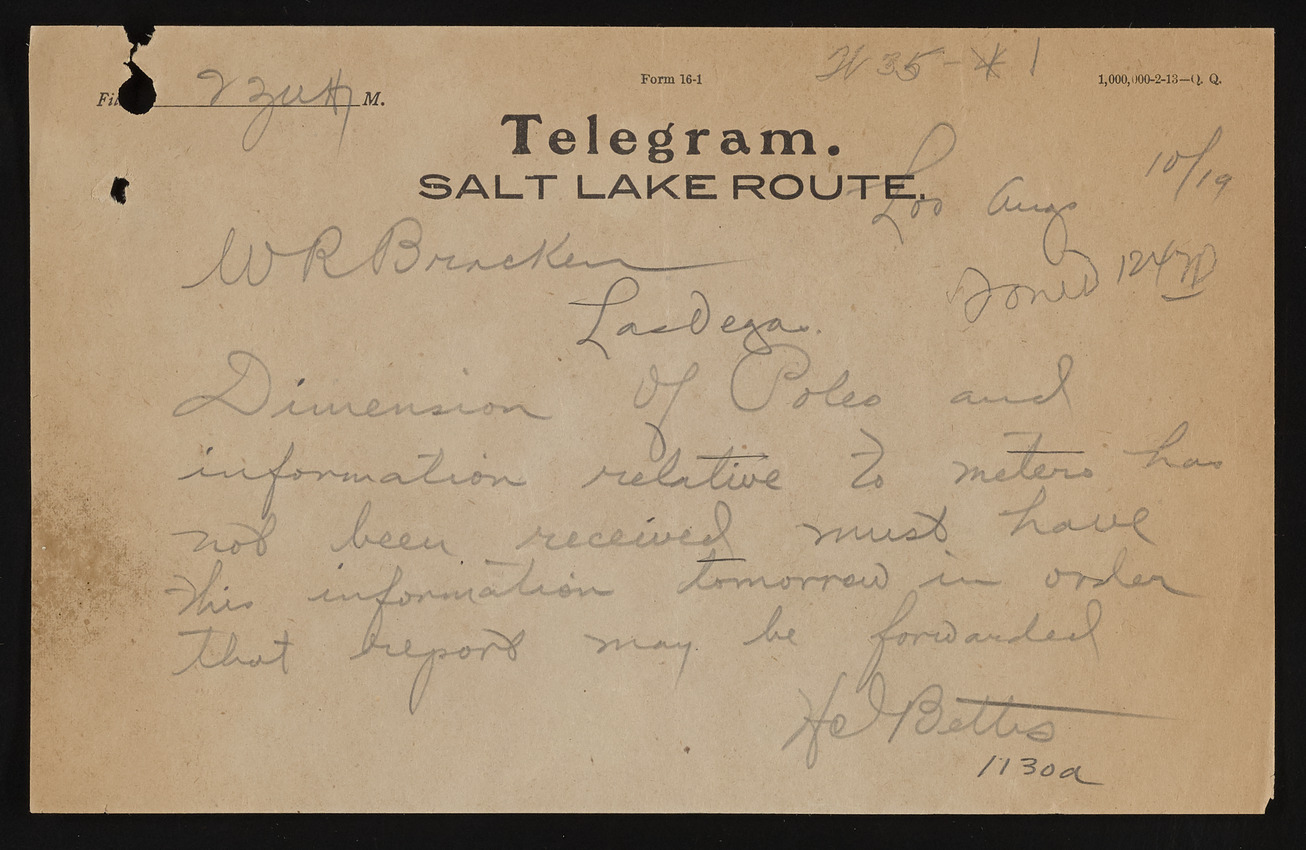 W35-4 1
Form 16-1
1,000,000-2-13—Q. Q.
M.
Telegram.
SALT LAKE ROUTE.
Los Angs 10/19
W R Bracken
Las Vegas.
Dimension of Poles and
information relative to meters has
not been received must have
this information tomorrow in order
that report may be forwarded
Bettis
1130a